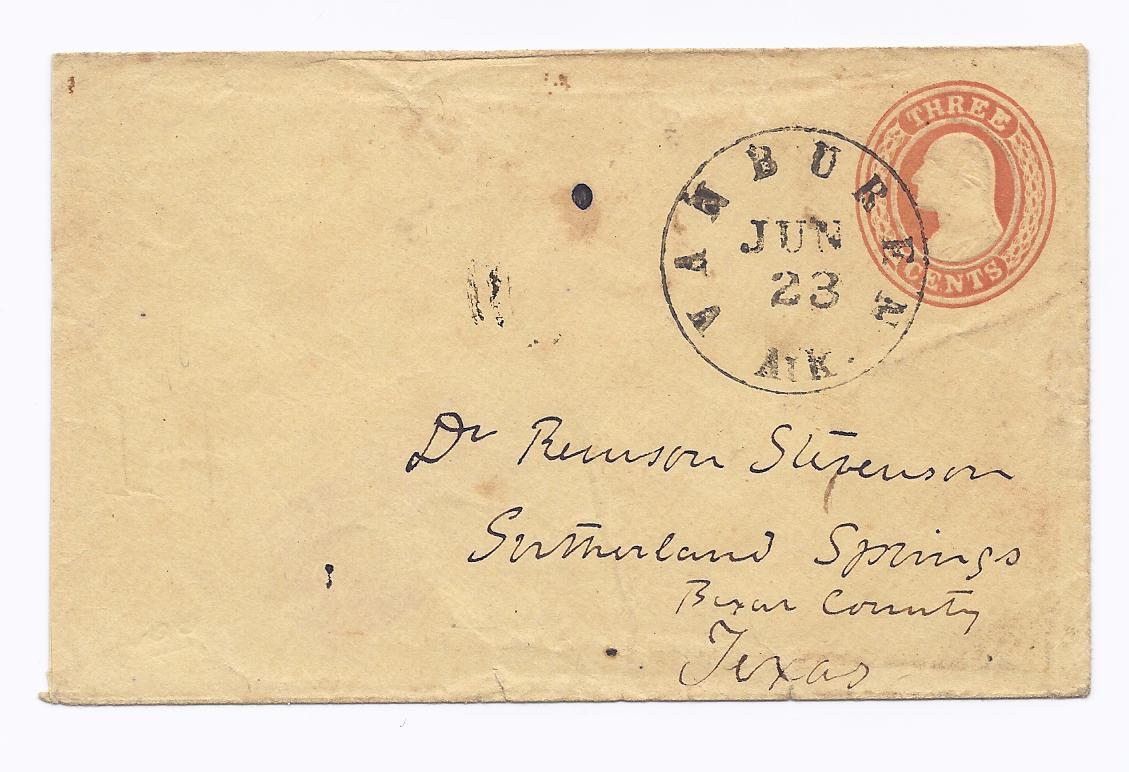 THREE
CENTS
VAN BUREN
JUN
23
ArK.
Dr Remson Stevenson
Sutherland Springs
Bexar County
Texas